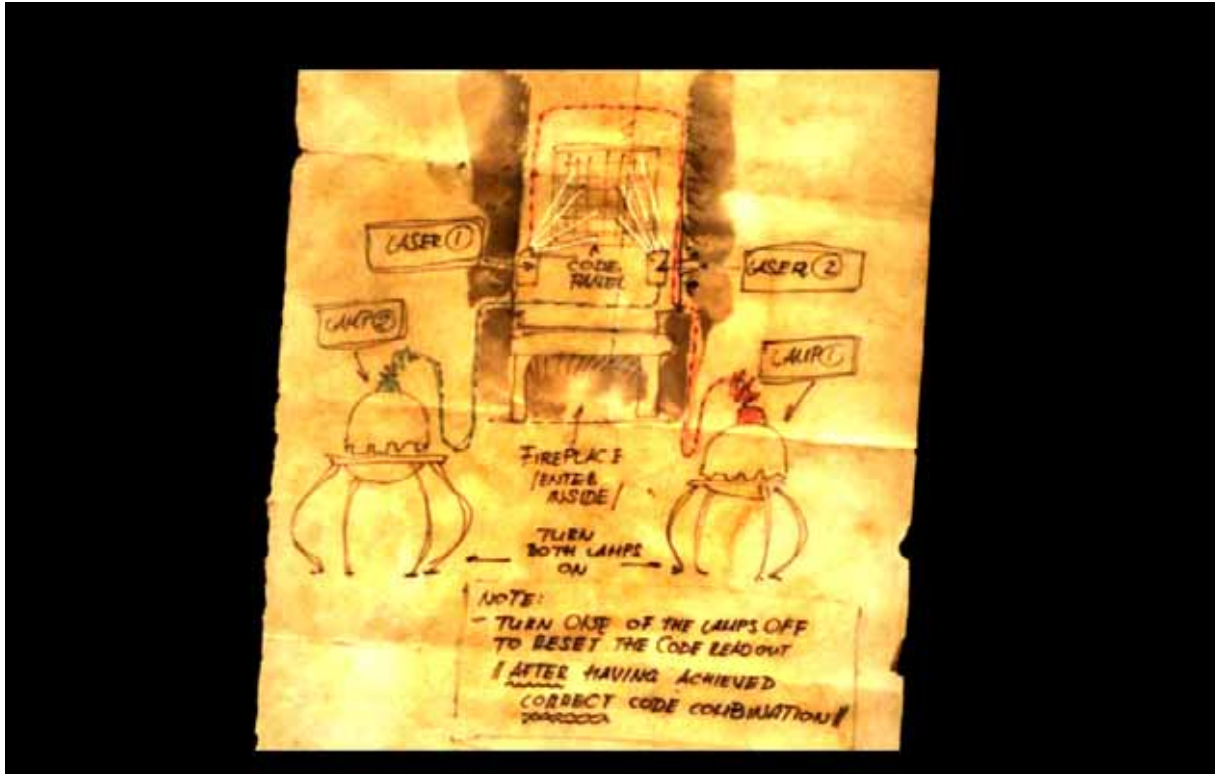 LASER 1
CODE
PANEL
LASER 2
LAMP 2
LAMP 1
FIREPLACE
/ENTER
INSIDE/
TURN
BOTH LAMPS
ON
NOTE:
- TURN ONE OF THE LAMPS OFF
TO RESET THE CODE READOUT
// AFTER HAVING ACHIEVED
CORRECT CODE COMBINATION //